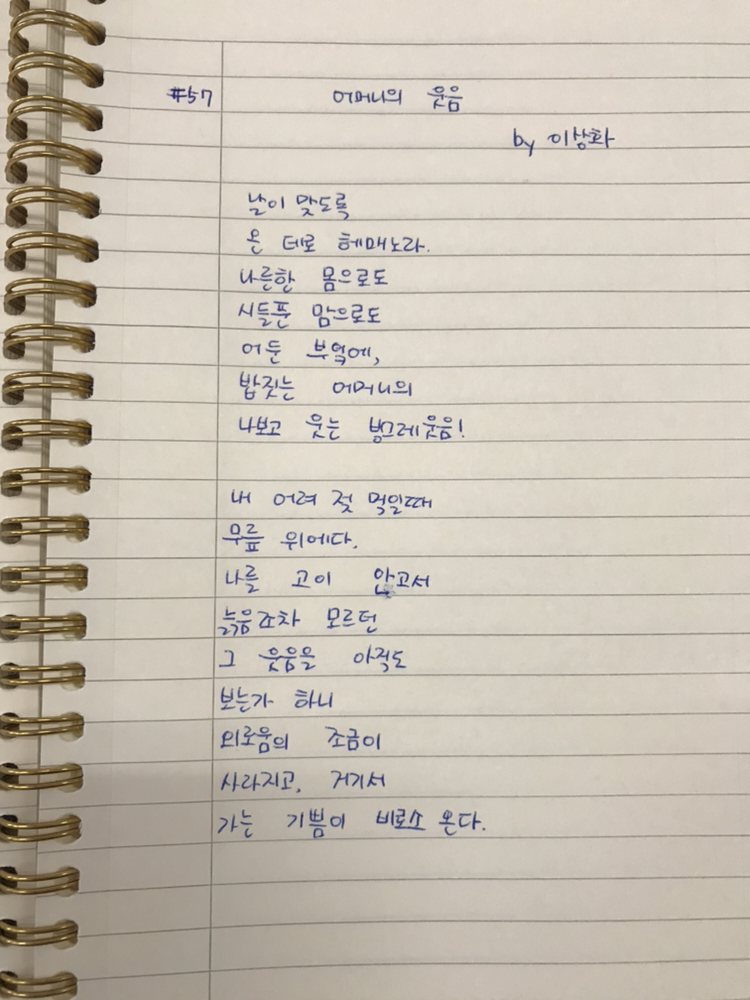 #57 어머니의 웃음
by 이상화
날이 맞도록
온 데로 헤매노라.
나른한 몸으로도
시들푼 맘으로도
어둔 부엌에,
밥짓는 어머니의
나보고 웃는 빙그레웃음!
내 어려 젖 먹일때
무릎 위에다,
나를 고이 안고서
늙음조차 모르던
그 웃음을 아직도
보는가 하니
외로움의 조금이
사라지고, 거기서
가는 기쁨이 비로소 온다.